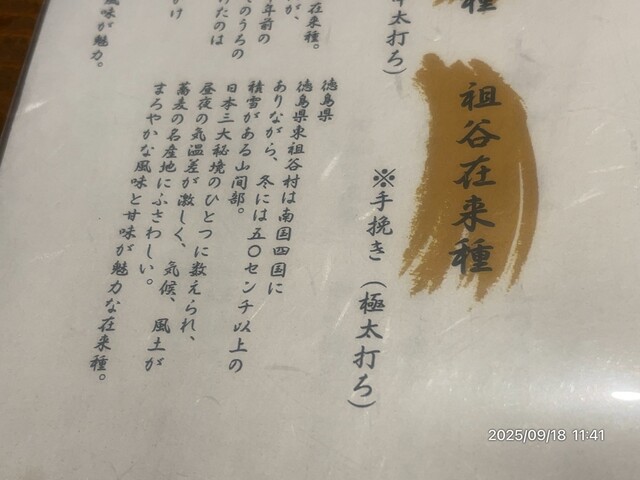 種
祖谷在来種
※手挽き（極太打ち）
太打ち）
徳島県
徳島県東祖谷村は南国四国に
ありながら、冬には五〇センチ以上の
積雪がある山間部。
日本三大秘境のひとつに数えられ、
昼夜の気温差が激しく、気候、風土が
蕎麦の名産地にふさわしい。
まろやかな風味と甘味が魅力な在来種。
在来種。
が、
年前の
のうちの
けたのは
かけ
風味が魅力。
2025/09/18 11:41